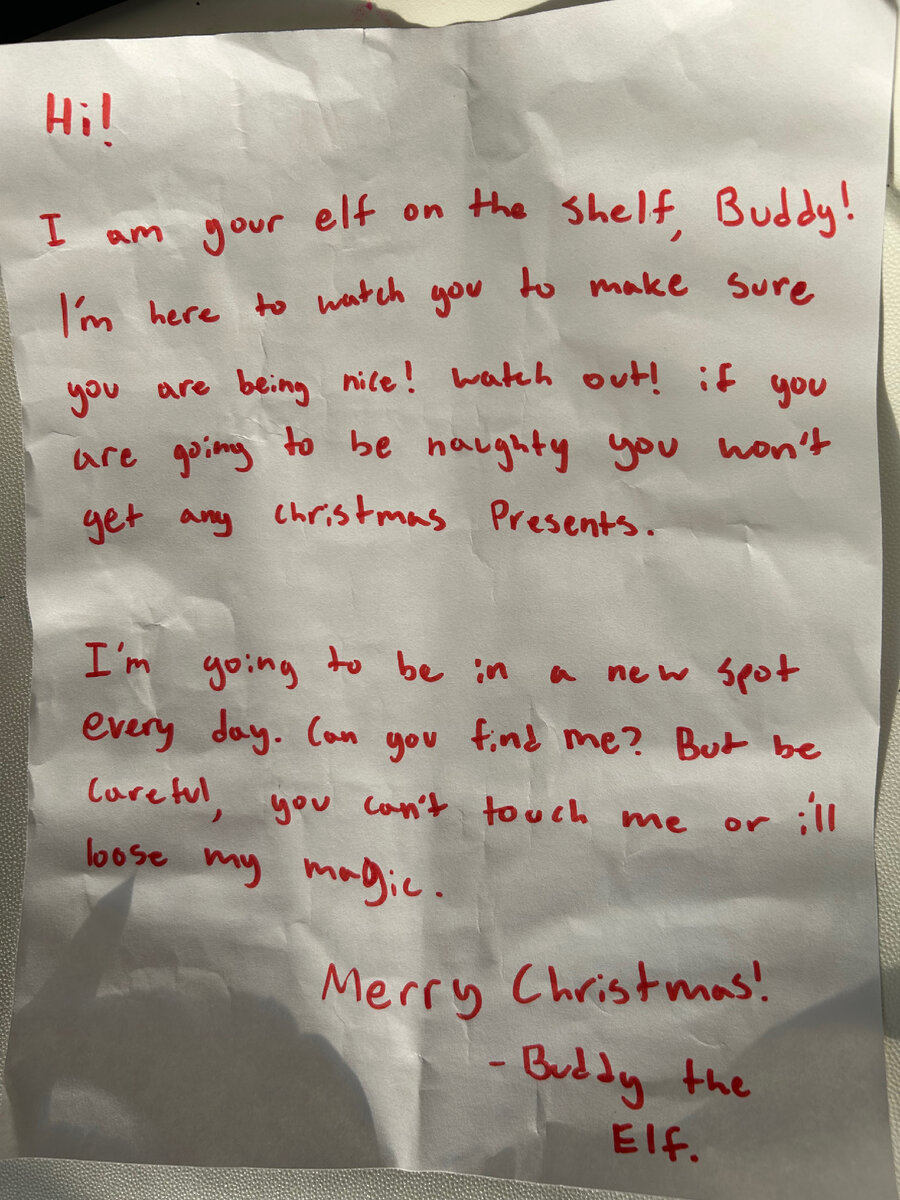 Hi!
I am your elf on the shelf, Buddy!
I'm here to watch you to make sure
you are being nice! watch out! if you
are going to be naughty you won't
get any christmas Presents.
I'm going to be in a new spot
every day. Can you find me? But be
careful, you can't touch me or i'll
loose my magic.
Merry Christmas!
- Buddy the
Elf.